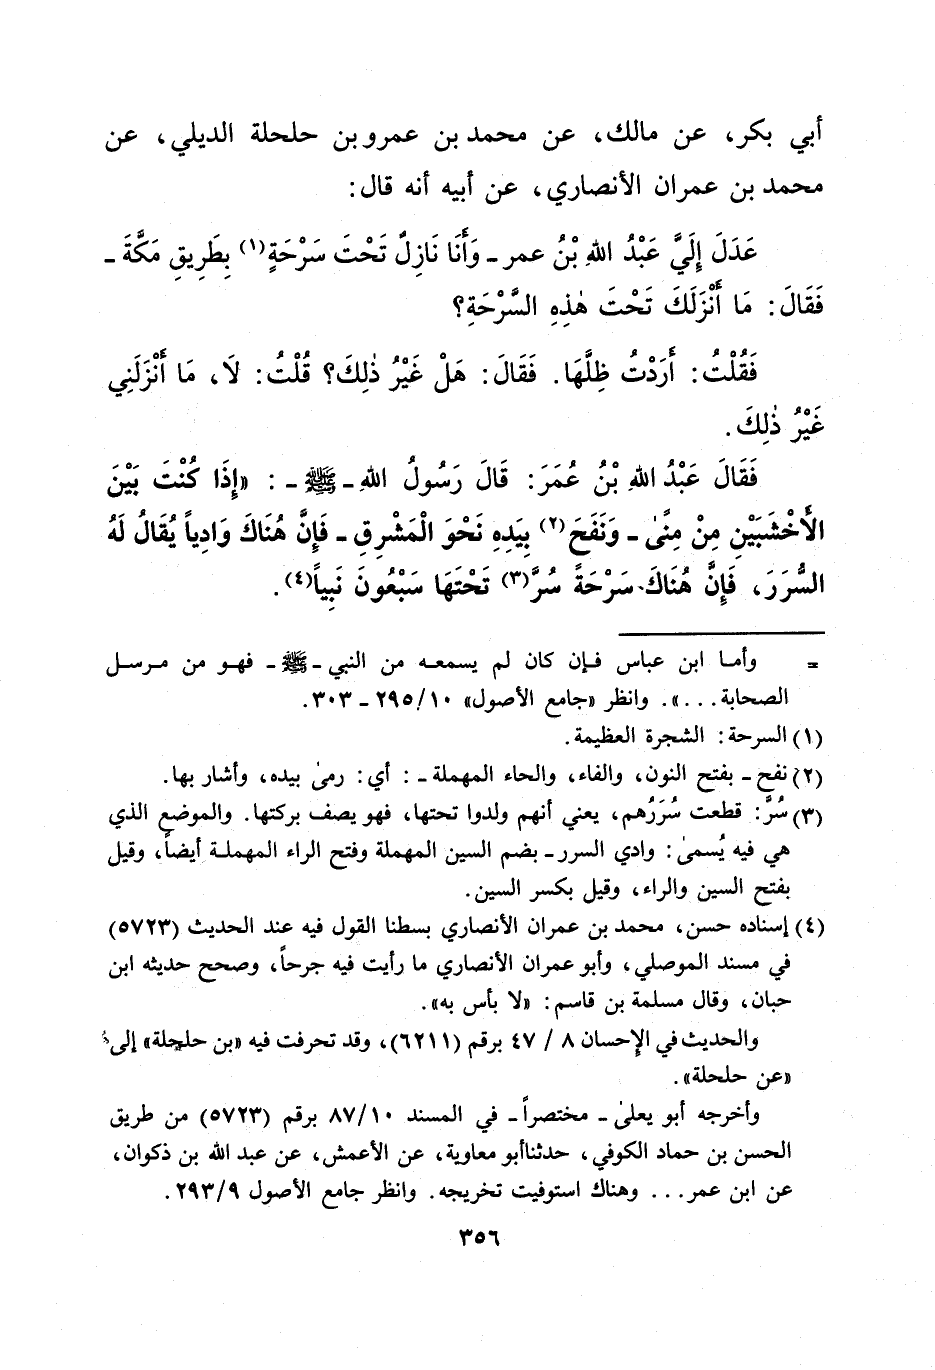 أبي بكر، عن مالك، عن محمد بن عمرو بن حلحلة الديلي، عن
محمد بن عمران الأنصاري، عن أبيه أنه قال:
عَدَلَ إِلَيَّ عَبْدُ اللهِ بْنُ عمر ـ وَأَنَا نَازِلٌ تَحْتَ سَرْحَةٍ(١) بِطَرِيقِ مَكَّةَ ـ
فَقَالَ: مَا أَنْزَلَكَ تَحْتَ هٰذِهِ السَّرْحَةِ؟
فَقُلْتُ: أَرَدْتُ ظِلَّهَا. فَقَالَ: هَلْ غَيْرُ ذٰلِكَ؟ قُلْتُ: لَا، مَا أَنْزَلَنِي
غَيْرُ ذٰلِكَ.
فَقَالَ عَبْدُ اللهِ بْنُ عُمَرَ: قَالَ رَسُولُ اللهِ ـ ﷺ ـ: «إِذَا كُنْتَ بَيْنَ
الْأَخْشَبَيْنِ مِنْ مِنًى ـ وَنَفَحَ(٢) بِيَدِهِ نَحْوَ الْمَشْرِقِ ـ فَإِنَّ هُنَاكَ وَادِياً يُقَالُ لَهُ
السُّرَرَ، فَإِنَّ هُنَاكَ سَرْحَةً سُرَّ(٣) تَحْتَهَا سَبْعُونَ نَبِياً(٤).
= وأما ابن عباس فإن كان لم يسمعه من النبي ـ ﷺ ـ فهو من مرسل
الصحابة...». وانظر «جامع الأصول» ١٠/ ٢٩٥ ـ ٣٠٣.
(١) السرحة: الشجرة العظيمة.
(٢) نفح ـ بفتح النون، والفاء، والحاء المهملة ـ: أي: رمىٰ بيده، وأشار بها.
(٣) سُرَّ: قطعت سُرَرُهم، يعني أنهم ولدوا تحتها، فهو يصف بركتها. والموضع الذي
هي فيه يُسمىٰ: وادي السرر ـ بضم السين المهملة وفتح الراء المهملة أيضاً، وقيل
بفتح السين والراء، وقيل بكسر السين.
(٤) إسناده حسن، محمد بن عمران الأنصاري بسطنا القول فيه عند الحديث (٥٧٢٣)
في مسند الموصلي، وأبو عمران الأنصاري ما رأيت فيه جرحاً، وصحح حديثه ابن
حبان، وقال مسلمة بن قاسم: «لا بأس به».
والحديث في الإحسان ٨ / ٤٧ برقم (٦٢١١)، وقد تحرفت فيه «بن حلحلة» إلى
«عن حلحلة».
وأخرجه أبو يعلىٰ ـ مختصراً ـ في المسند ١٠/ ٨٧ برقم (٥٧٢٣) من طريق
الحسن بن حماد الكوفي، حدثنا أبو معاوية، عن الأعمش، عن عبد الله بن ذكوان،
عن ابن عمر... وهناك استوفيت تخريجه. وانظر جامع الأصول ٩/ ٢٩٣.
٣٥٦